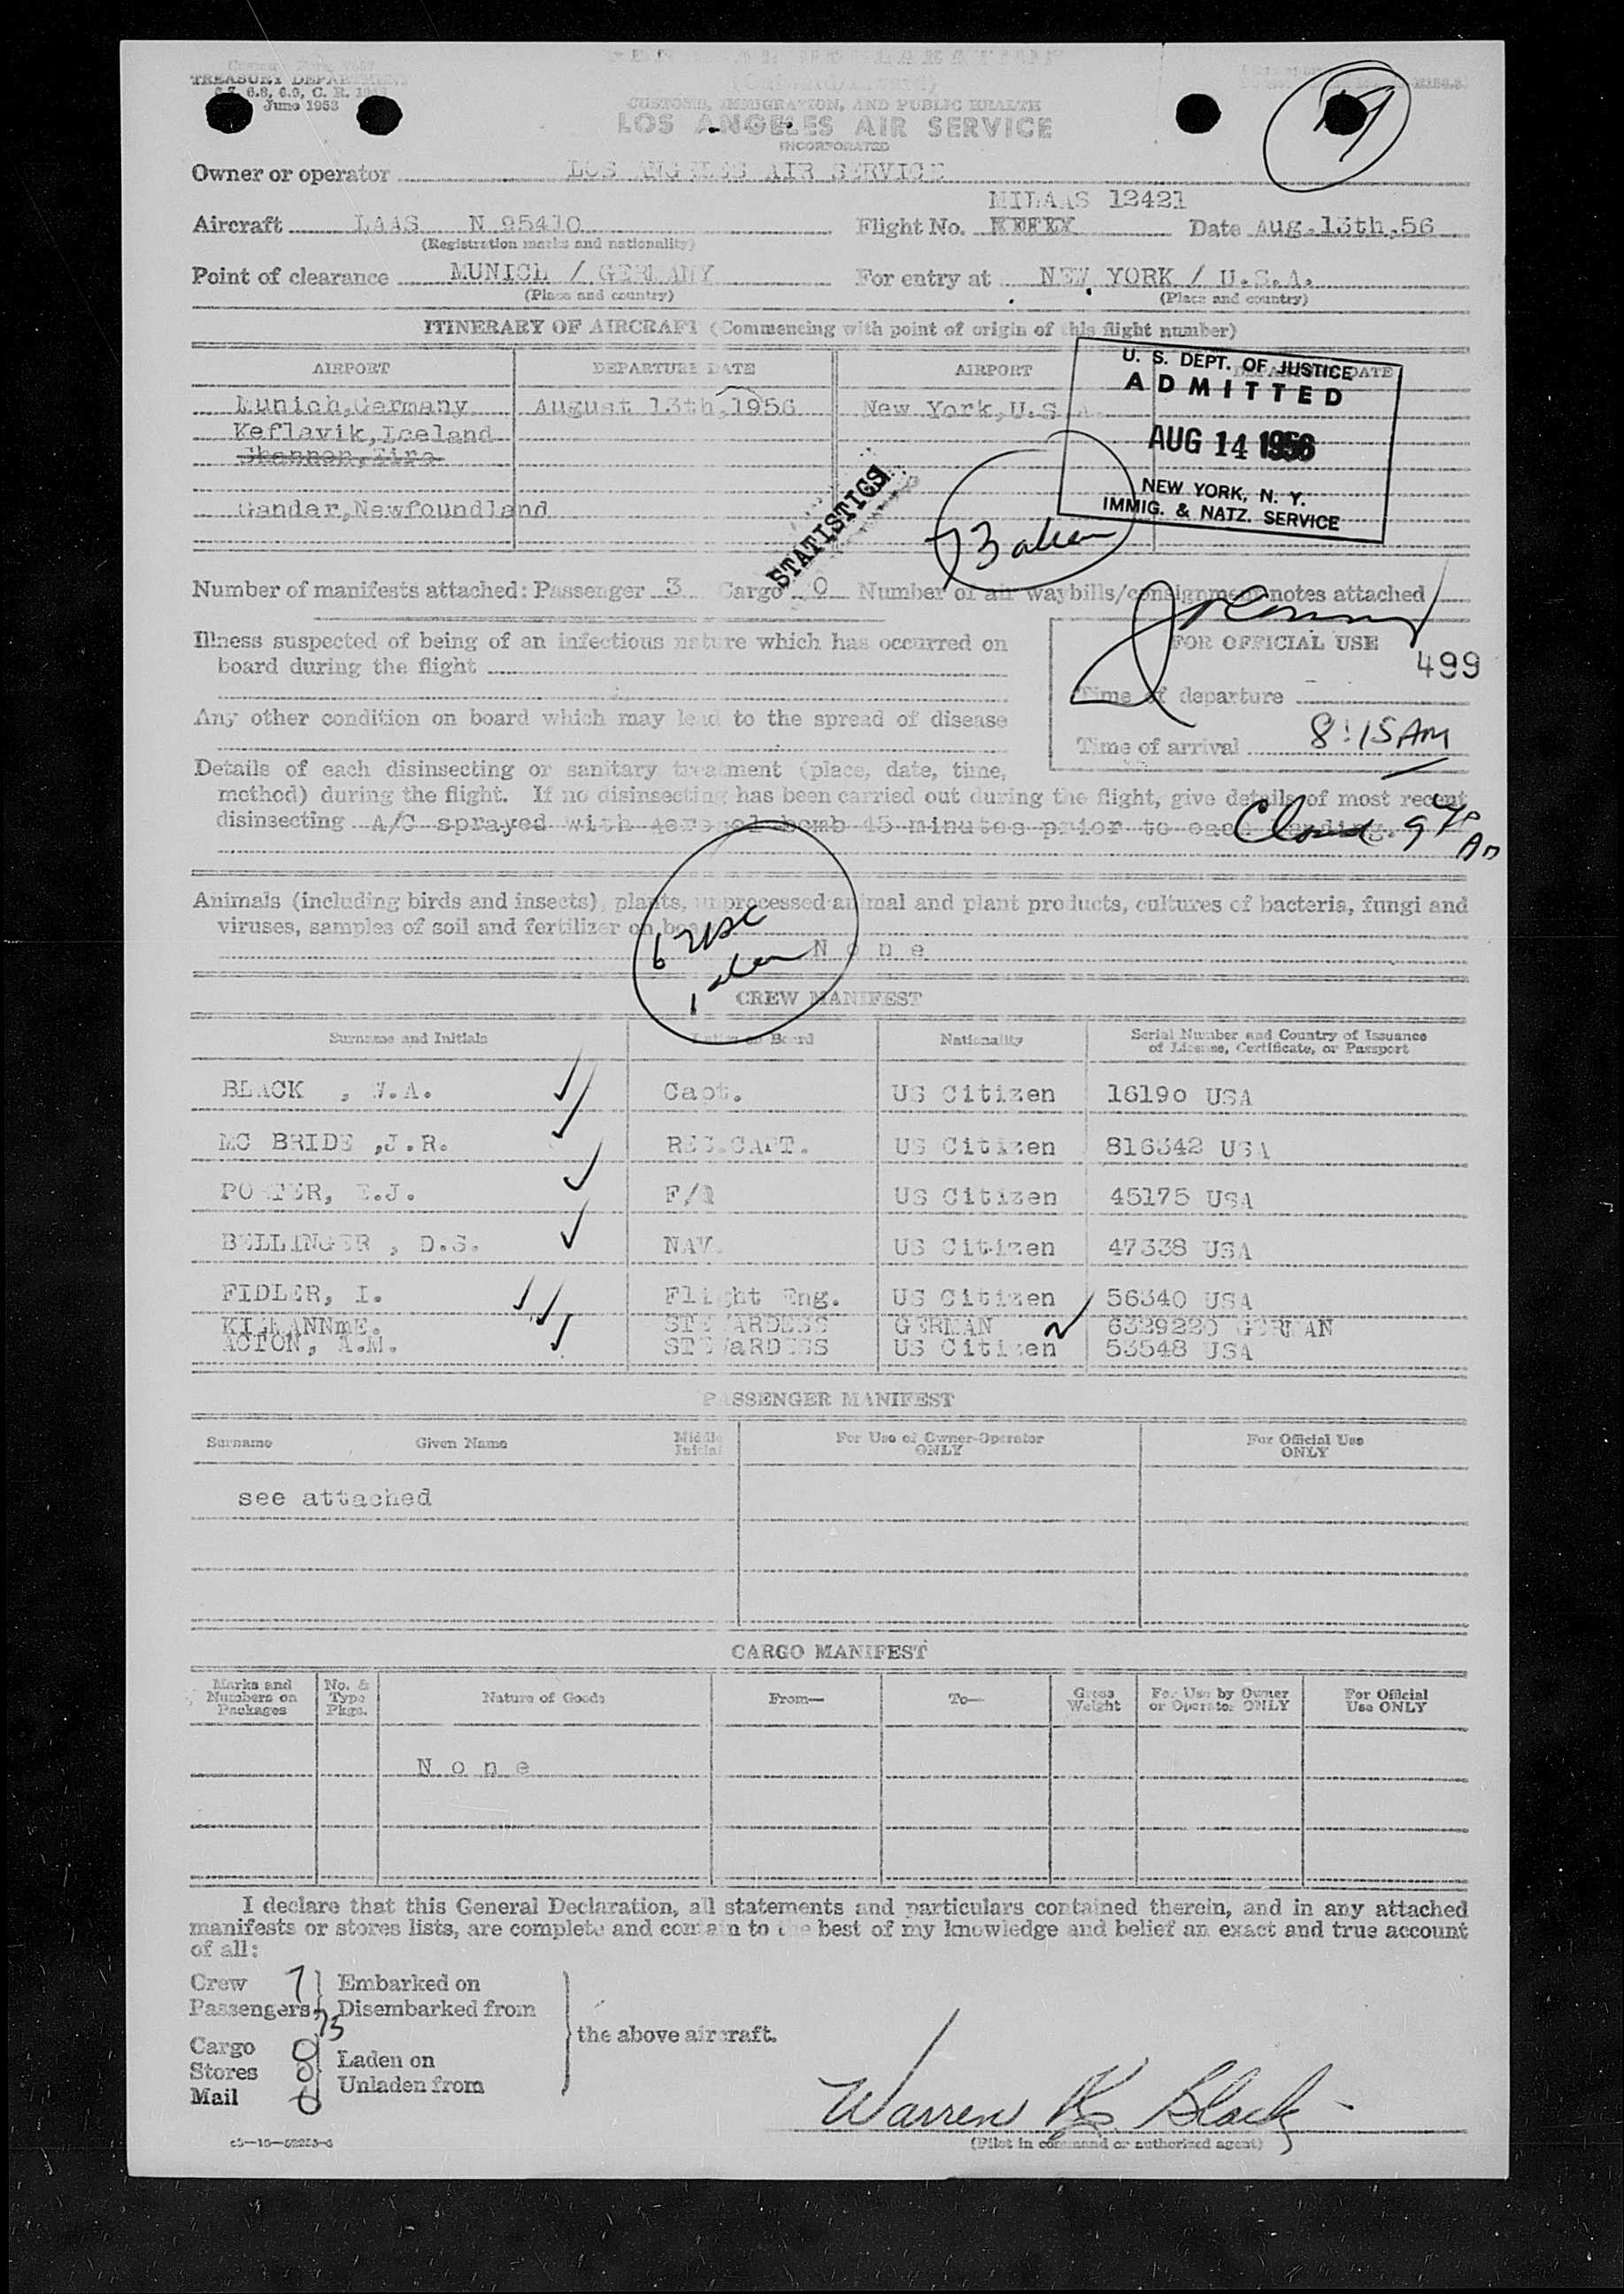 TREASURY DEPARTMENT
June 1953
CUSTOMS, IMMIGRATION, AND PUBLIC HEALTH
LOS ANGELES AIR SERVICE
INCORPORATED
Owner or operator LOS ANGELES AIR SERVICE
MILAAS 12421
Aircraft LAAS N 95410 Flight No. Date Aug.13th,56
(Registration marks and nationality)
Point of clearance MUNICH / GERMANY For entry at NEW YORK / U.S.A.
(Place and country) (Place and country)
ITINERARY OF AIRCRAFT (Commencing with point of origin of this flight number)
AIRPORT DEPARTURE DATE AIRPORT DEPARTURE DATE
Munich,Germany August 13th,1956 New York,U.S.A.
Keflavik,Iceland
Shannon,Eire
Gander,Newfoundland
U. S. DEPT. OF JUSTICE
ADMITTED
AUG 14 1956
NEW YORK, N. Y.
IMMIG. & NATZ. SERVICE
STATISTICS
73 alien
Number of manifests attached: Passenger 3 Cargo 0 Number of air waybills/consignment notes attached
Illness suspected of being of an infectious nature which has occurred on
board during the flight
FOR OFFICIAL USE
499
Time of departure
Any other condition on board which may lead to the spread of disease
Time of arrival 8:15 AM
Details of each disinsecting or sanitary treatment (place, date, time,
method) during the flight. If no disinsecting has been carried out during the flight, give details of most recent
disinsecting A/C sprayed with aerosol bomb 45 minutes prior to each landing.
Animals (including birds and insects), plants, unprocessed animal and plant products, cultures of bacteria, fungi and
viruses, samples of soil and fertilizer on board
None
6 USC
1 alien
CREW MANIFEST
Surname and Initials Duties on Board Nationality Serial Number and Country of Issuance
of License, Certificate, or Passport
BLACK , W.A. Capt. US Citizen 16190 USA
MC BRIDE ,J.R. REC.CAPT. US Citizen 816342 USA
PORTER, E.J. US Citizen 45175 USA
BELLINGER , D.S. NAV. US Citizen 47338 USA
FIDLER, I. Flight Eng. US Citizen 56340 USA
STEWARDESS GERMAN 6329220 GERMAN
ACTON, A.M. STEWaRDESS US Citizen 53548 USA
PASSENGER MANIFEST
Surname Given Name Middle Initial For Use of Owner-Operator ONLY For Official Use ONLY
see attached
CARGO MANIFEST
Marks and Numbers on Packages No. & Type Pkgs. Nature of Goods From— To— Gross Weight For Use by Owner or Operator ONLY For Official Use ONLY
None
I declare that this General Declaration, all statements and particulars contained therein, and in any attached
manifests or stores lists, are complete and contain to the best of my knowledge and belief an exact and true account
of all:
Crew 7 Embarked on
Passengers 73 Disembarked from
the above aircraft.
Cargo 0 Laden on
Stores 0 Unladen from
Mail 0
Warren K Black
(Pilot in command or authorized agent)